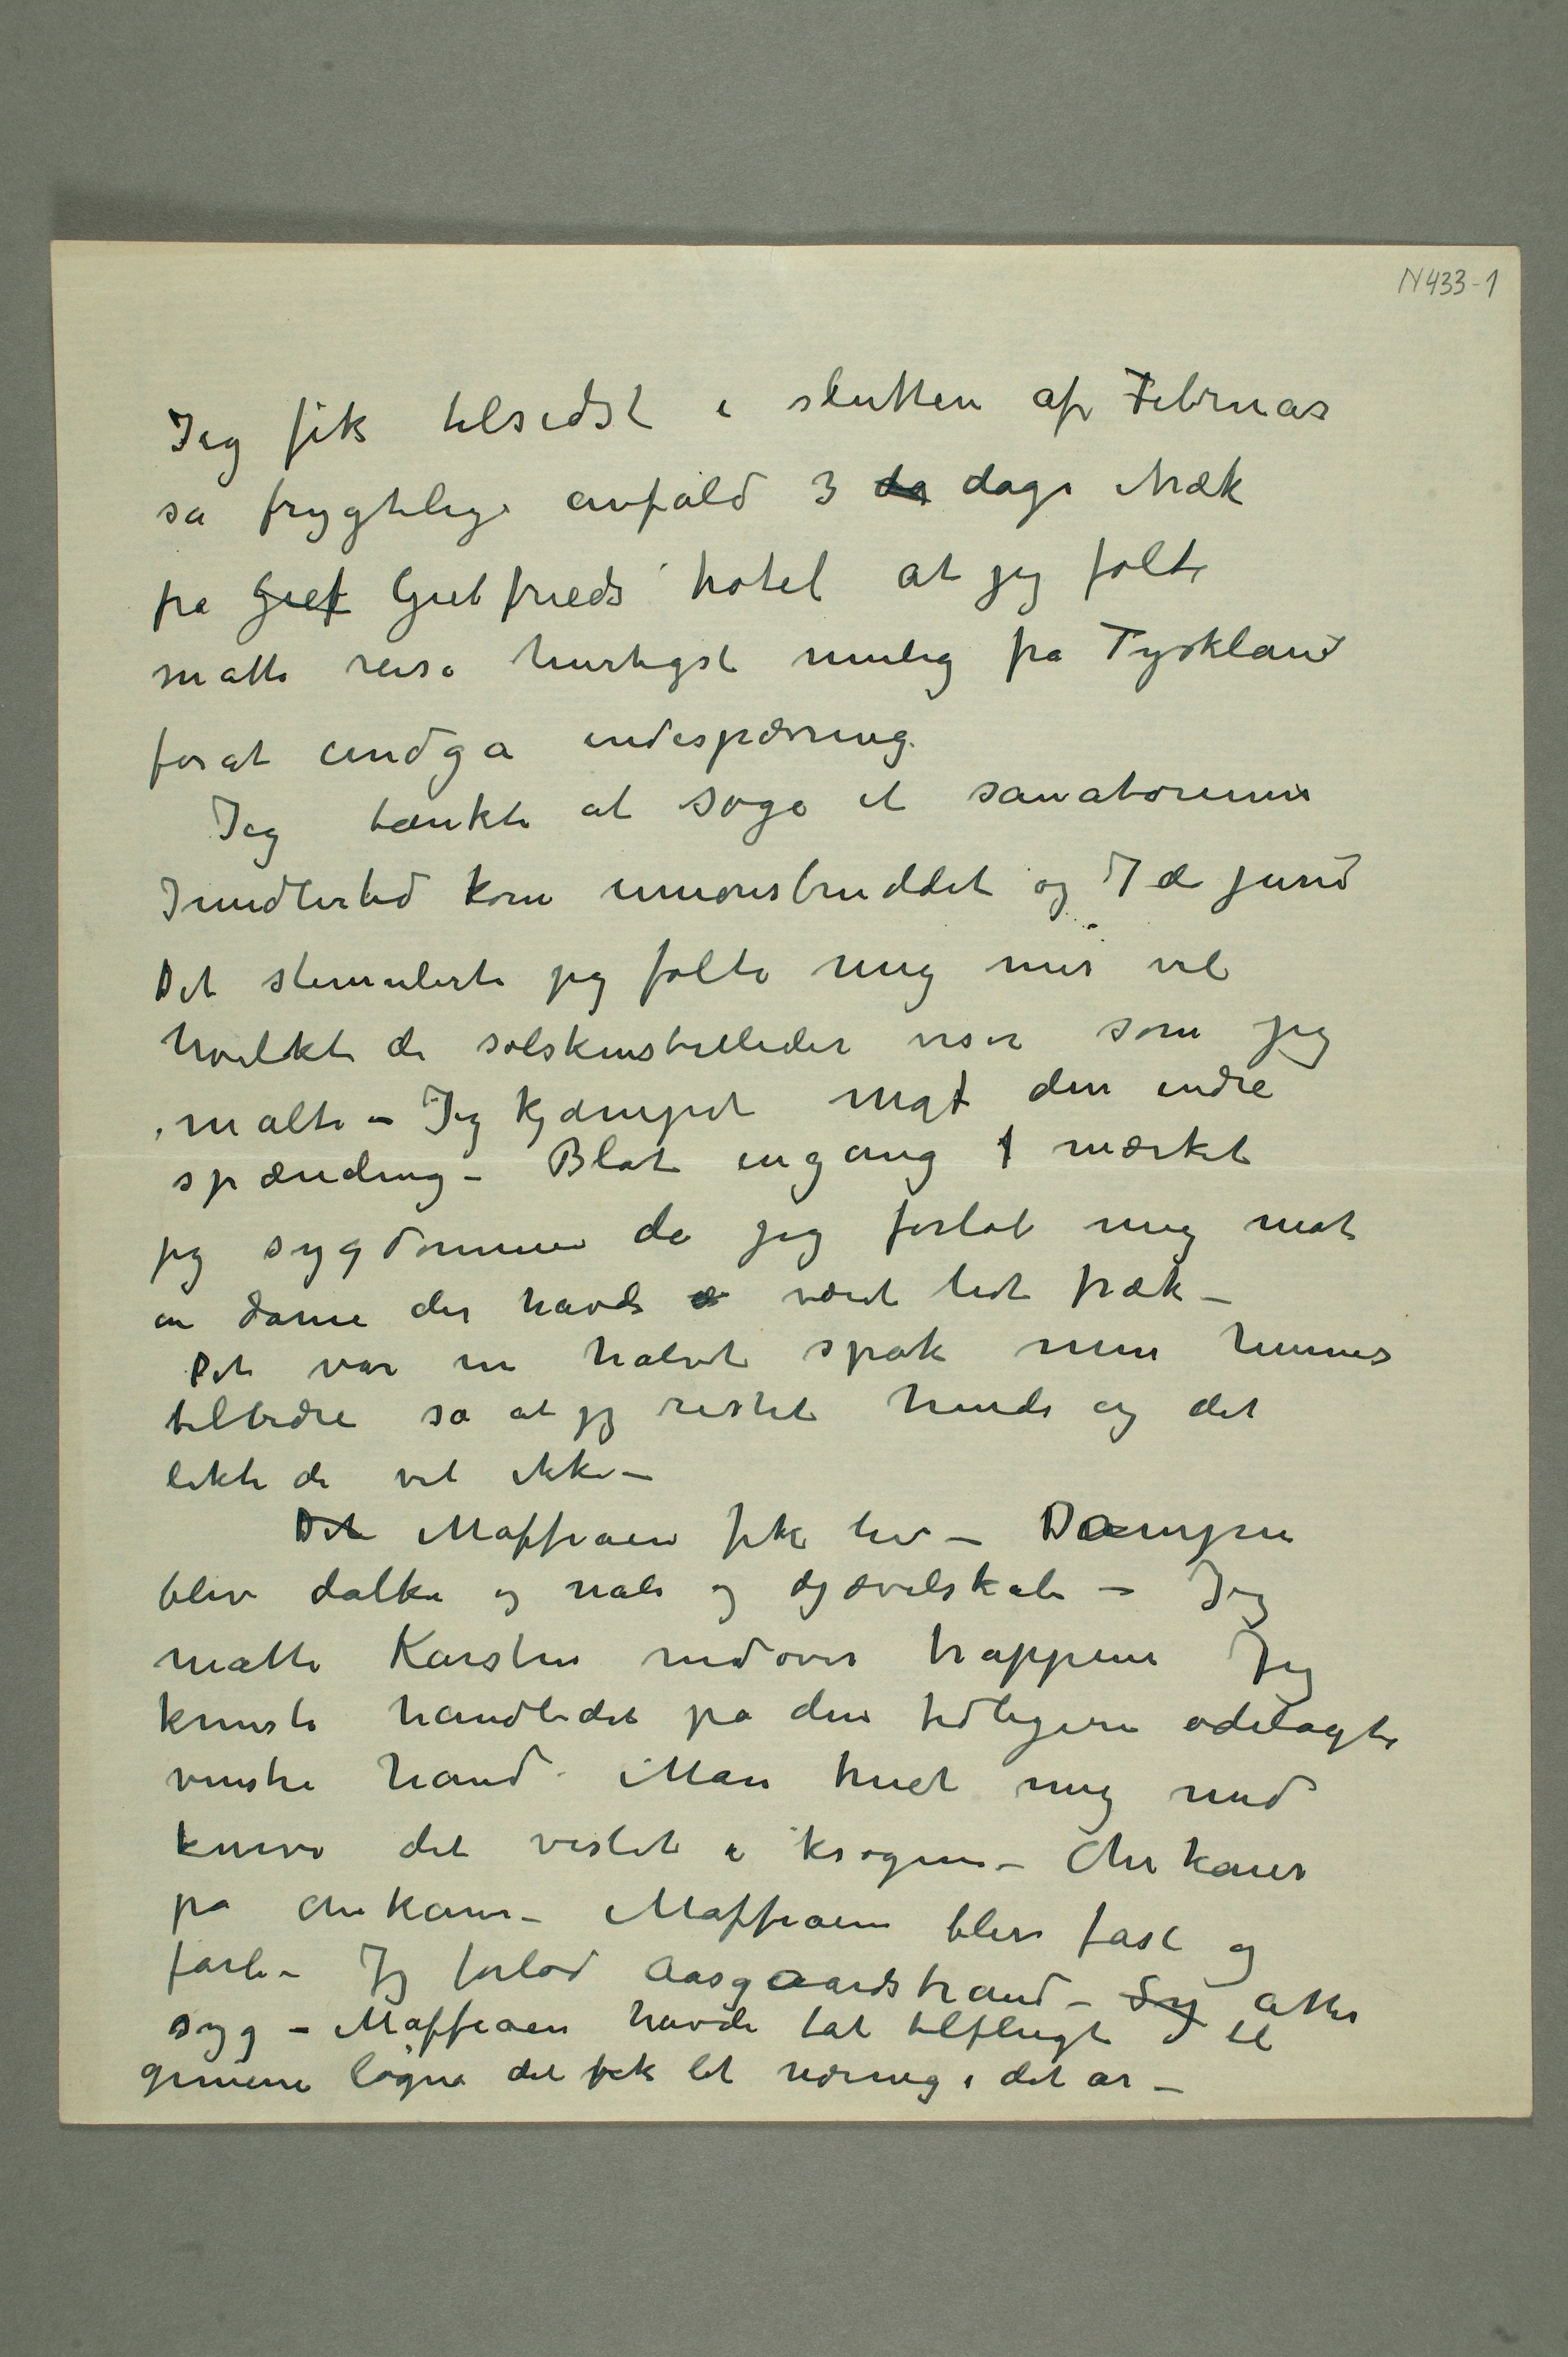 N433-1
Jeg fik tilsidst i slutten af Februar
så frygtelige anfald 3 da dage itræk
fra Gref Grebfrieds hotel at jeg følte
måtte reise hurtigst mulig fra Tyskland
forat undgå indespærring.
Jeg tænkte at søge et sanatorium
Imidlertid kom unionsbruddet og 7de juni
Det stimulerte jeg følte mig mer vel
hvilket de solskinsbilleder viser som jeg
malte – Jeg kjæmpet mot den indre
spænding – Blot engang mærket
jeg sygdommen da jeg forløb mig mot
en dame der havde været lidt fræk –
Det var en halvt spøk men hennes
tilbedre så at jeg ristet hende og det
likte de vel ikke –
Det Maffiaen fik liv – Dampen
blev dolke og nåle og djævelskab – Jeg
måtte Karsten nedover trappene Jeg
knuste håndledet på den tidligere ødelagte
venstre hånd. Man truet mig med
knive det hvislet i krogene – Chikaner
på chikaner – Maffiaen blev fast og
farli – Jeg forlod Aasgaardstrand – Sy atter
syg – Maffiaen havde tat tilflugt til
gemene løgne det fik let næring i det år –